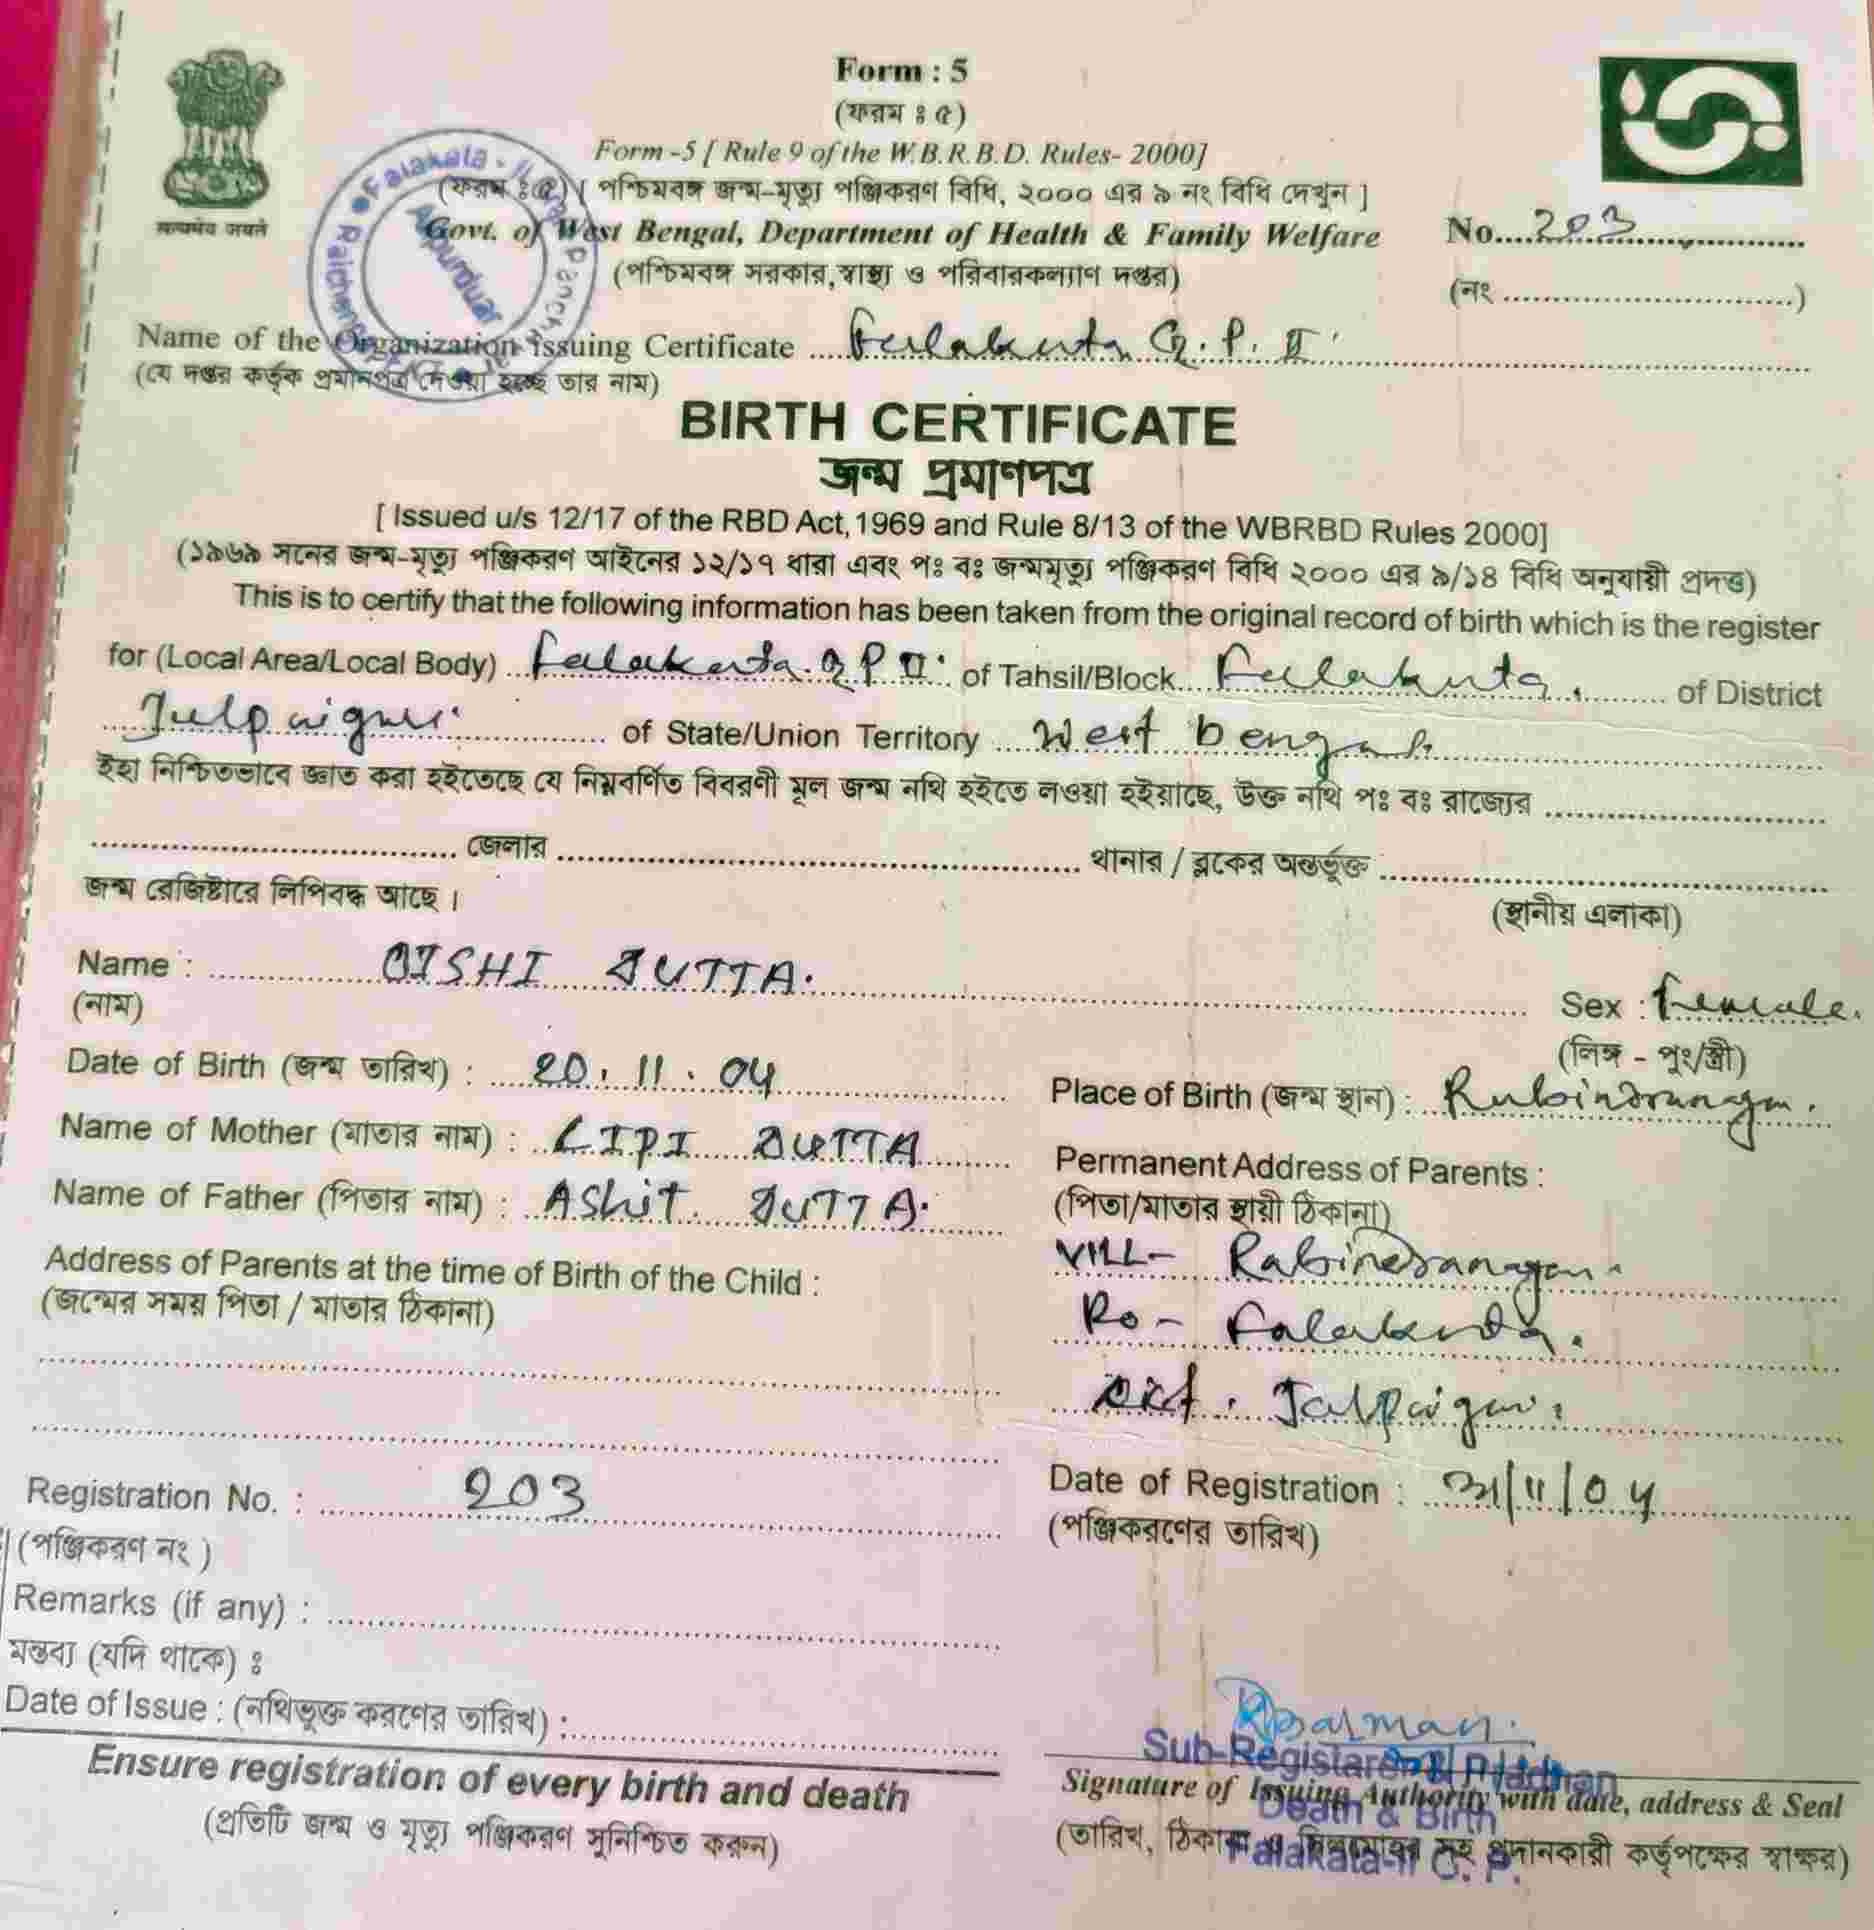 Form : 5
(ফরম ঃ ৫)
Form -5 [ Rule 9 of the W.B.R.B.D. Rules- 2000]
(ফরম ঃ ৫) [ পশ্চিমবঙ্গ জন্ম-মৃত্যু পঞ্জিকরণ বিধি, ২০০০ এর ৯ নং বিধি দেখুন ]
Govt. of West Bengal, Department of Health & Family Welfare No. 203
(পশ্চিমবঙ্গ সরকার, স্বাস্থ্য ও পরিবারকল্যাণ দপ্তর) (নং ..............................)
सत्यमेव जयते
Alipurduar
Name of the Organization issuing Certificate Falakata G. P. II
(যে দপ্তর কর্তৃক প্রমানপত্র দেওয়া হচ্ছে তার নাম)
BIRTH CERTIFICATE
জন্ম প্রমাণপত্র
[ Issued u/s 12/17 of the RBD Act, 1969 and Rule 8/13 of the WBRBD Rules 2000]
(১৯৬৯ সনের জন্ম-মৃত্যু পঞ্জিকরণ আইনের ১২/১৭ ধারা এবং পঃ বঃ জন্মমৃত্যু পঞ্জিকরণ বিধি ২০০০ এর ৯/১৪ বিধি অনুযায়ী প্রদত্ত)
This is to certify that the following information has been taken from the original record of birth which is the register
for (Local Area/Local Body) Falakata G P II of Tahsil/Block Falakata of District
Jalpaiguri of State/Union Territory West Bengal
ইহা নিশ্চিতভাবে জ্ঞাত করা হইতেছে যে নিম্নবর্ণিত বিবরণী মূল জন্ম নথি হইতে লওয়া হইয়াছে, উক্ত নথি পঃ বঃ রাজ্যের ..............................
.............................. জেলার .............................. থানার / ব্লকের অন্তর্ভুক্ত ..............................
জন্ম রেজিষ্টারে লিপিবদ্ধ আছে । (স্থানীয় এলাকা)
Name : OISHI DUTTA. Sex : Female.
(নাম) (লিঙ্গ - পুং/স্ত্রী)
Date of Birth (জন্ম তারিখ) : 20.11.04 Place of Birth (জন্ম স্থান) : Rabindranagar.
Name of Mother (মাতার নাম) : LIPI DUTTA Permanent Address of Parents :
Name of Father (পিতার নাম) : AShit DUTTA. (পিতা/মাতার স্থায়ী ঠিকানা)
Address of Parents at the time of Birth of the Child : VILL- Rabindranagar.
(জন্মের সময় পিতা / মাতার ঠিকানা) Po- Falakata.
Dist. Jalpaiguri
Registration No. : 203 Date of Registration : 21/11/04
(পঞ্জিকরণ নং ) (পঞ্জিকরণের তারিখ)
Remarks (if any) :
মন্তব্য (যদি থাকে) ঃ
Date of Issue : (নথিভুক্ত করণের তারিখ) :
Ensure registration of every birth and death
(প্রতিটি জন্ম ও মৃত্যু পঞ্জিকরণ সুনিশ্চিত করুন)
Barman
Signature of Issuing Authority with date, address & Seal
Death & Birth
(তারিখ, ঠিকানা ও সিলমোহর সহ প্রদানকারী কর্তৃপক্ষের স্বাক্ষর)
Falakata-II G. P.